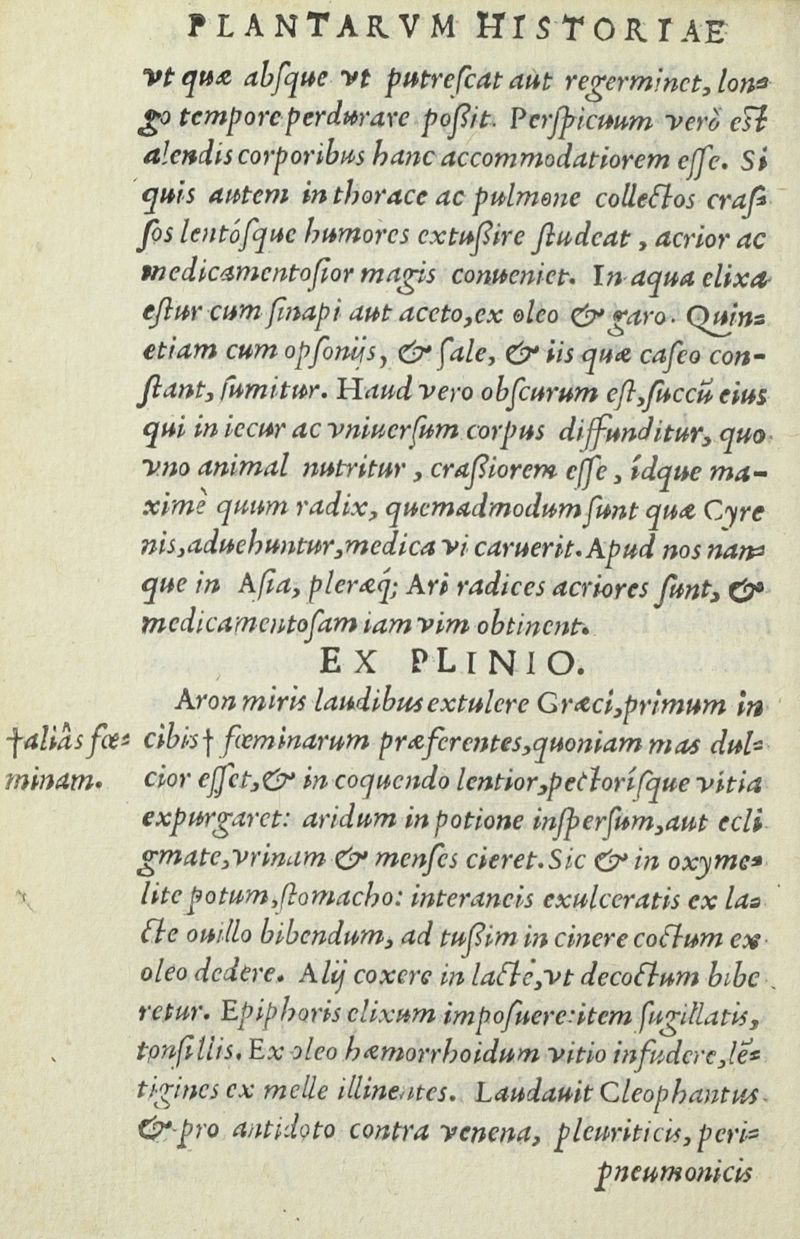 PLANTARVM HISTORIAE
vt quæ absque vt putrescat aut regerminet, lon-
go tempore perdurare poßit. Perspicuum verò est
alendis corporibus hanc accommodatiorem esse. Si
quis autem in thorace ac pulmone collectos craß
sos lentósque humores extußire studeat, acrior ac
medicamentosior magis conueniet. In aqua elixa
estur cum sinapi aut aceto, ex oleo & garo. Quin-
etiam cum opsonijs, & sale, & iis quæ caseo con-
stant, sumitur. Haud vero obscurum est, succũ eius
qui in iecur ac vniuersum corpus diffunditur, quo
vno animal nutritur, craßiorem esse, ídque ma-
ximè quum radix, quemadmodum sunt quæ Cyre
nis, aduehuntur, medica vi caruerit. Apud nos nan-
que in Asia, pleræq́; Ari radices acriores sunt, &
medicamentosam iam vim obtinent.
EX PLINIO.
Aron miris laudibus extulere Græci, primum in
†aliâs fœ- cibis † fœminarum præferentes, quoniam mas dul-
minam. cior esset, & in coquendo lentior, pectorísque vitia
expurgaret: aridum in potione inspersum, aut ecli
gmate, vrinam & menses cieret. Sic & in oxyme-
lite potum, stomacho: interaneis exulceratis ex la-
cte ouillo bibendum, ad tußim in cinere coctum ex
oleo dedere. Alij coxere in lacte, vt decoctum bibe
retur. Epiphoris elixum imposuere: item sugillatis,
tonsillis. Ex oleo hæmorrhoidum vitio infudere, lẽ-
tigines ex melle illinentes. Laudauit Cleophantus
& pro antidoto contra venena, pleuriticis, peri-
pneumonicis